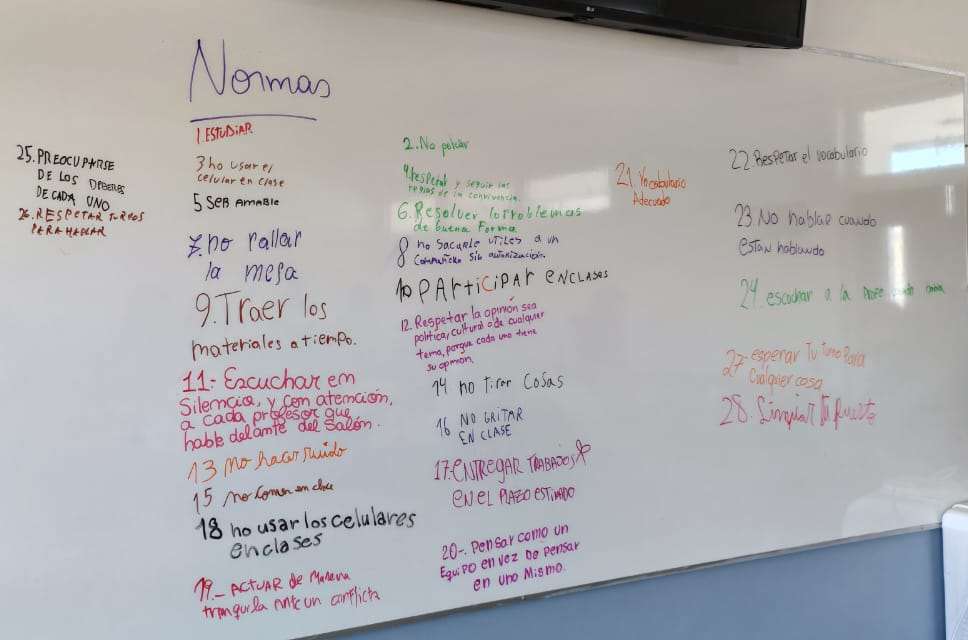 Normas
25. PREOCUPARSE
DE LOS DEBERES
DE CADA UNO
26. RESPETAR TURNOS
PARA HABLAR
1. ESTUDIAR
3 no usar el
celular en clase
5 SER AMABLE
7. no rallar
la mesa
9. Traer los
materiales a tiempo.
11.- Escuchar em
Silencio, y con atención,
a cada profesor que
hable delante del salón.
13 no hacer ruido
15 no comer en clase
18 no usar los celulares
en clases
19.- ACTUAR de Manera
tranquila ante un conflicto
2. No pelear
4. respetar y seguir las
reglas de la convivencia.
6. Resolver los problemas
de buena forma
8 no sacarle utiles a un
compañero sin autorización.
10 PARTICIPAR EN CLASES
12. Respetar la opinión sea
política, cultural o de cualquier
tema, porque cada uno tiene
su opinion.
14 no tirar cosas
16 NO GRITAR
EN CLASE
17. ENTREGAR TRABAJOS
EN EL PLAZO ESTIMADO
20-. Pensar como un
Equipo en vez De pensar
en uno mismo.
21. Vocabulario
Adecuado
22. Respetar el vocabulario
23. No hablar cuando
estan hablando
24. escuchar a la profe
27- esperar Tu turno Para
Cualquier cosa
28. Limpiar tu puesto